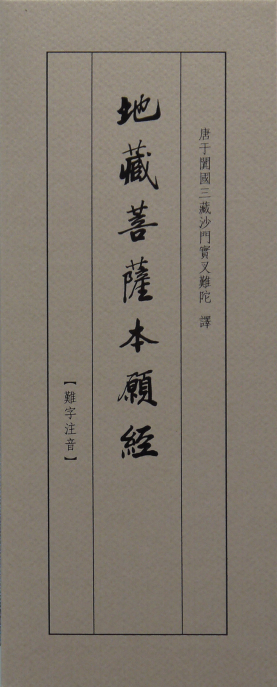 唐于闐國三藏沙門實叉難陀 譯
地藏菩薩本願經
【難字注音】